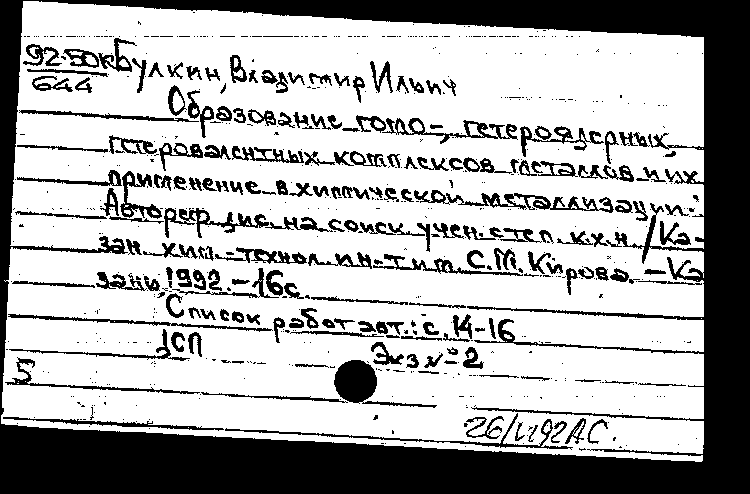 92-50к Булкин, Владимир Ильич
644
Образование гомо-, гетероядерных,
гетеровалентных комплексов металлов и их
применение в химической металлизации:
Автореф. дис. на соиск. учен. степ. к.х.н. / Ка-
зан. хим.-технол. ин-т им. С.М. Кирова. - Ка-
зань, 1992. - 16 с.
Список работ авт.: с. 14-16
ДСП Экз № 2
5